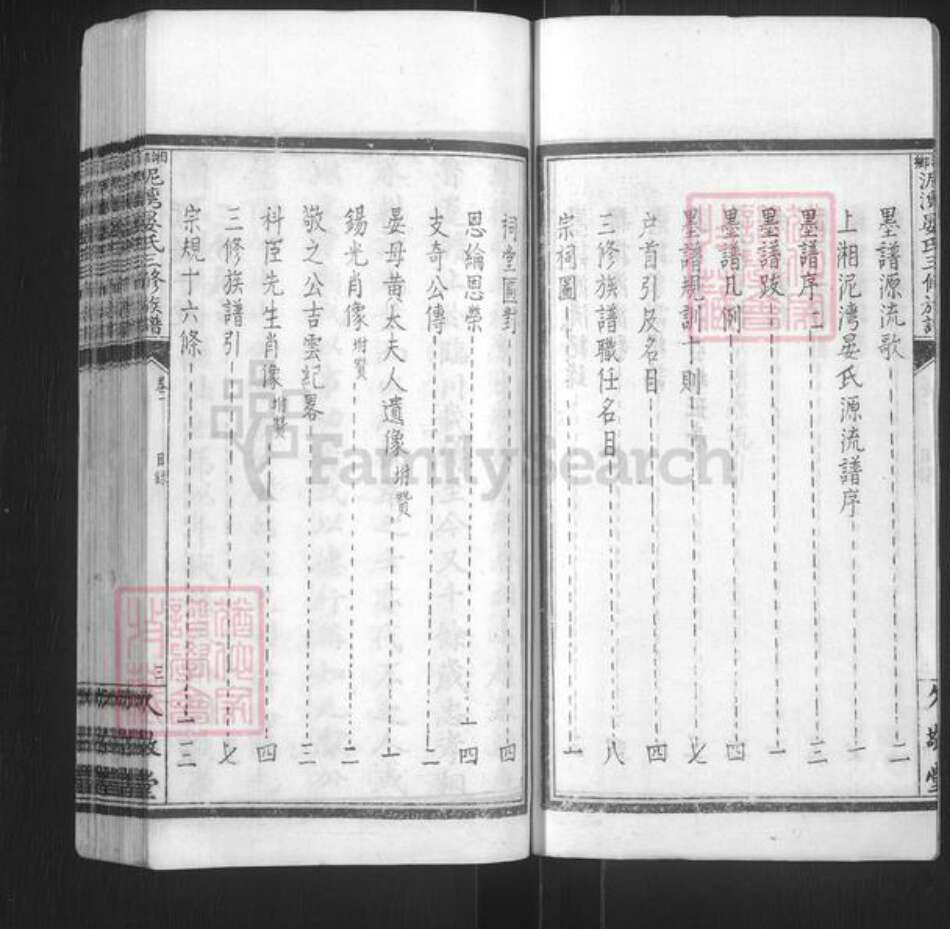 墨譜源流歌 二
上湘泥灣晏氏源流譜序 一
墨譜序二 三
墨譜跋 一
墨譜凡例 四
墨譜規訓十則 七
户首引及名目 四
三修族譜職任名目 八
宗祠圖 一
祠堂匾對 四
恩綸恩榮 一四
支奇公傳 二
晏母黃太夫人遺像坿贊 一
錫光肖像坿贊 二
敬之公吉雲紀畧 三
科臣先生肖像坿贊 四
三修族譜引 七
宗規十六條 一三
湘鄉泥灣晏氏三修族譜
卷一 目錄 三
久敬堂
FamilySearch